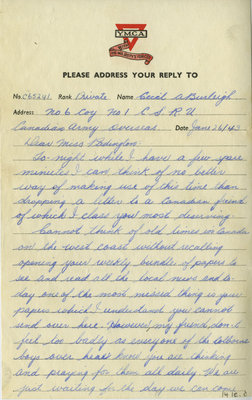 YMCA
PLEASE ADDRESS YOUR REPLY TO
No. C65241 Rank Private Name Cecil A Burleigh
Address No. 6 Coy No 1 C S R U
Canadian Army Overseas. Date June 26/43
Dear Miss Padington:
To-night while I have a few spare
minutes I can think of no better
way of making use of this time than
dropping a letter to a Canadian friend
of which I class you most deserving.
Cannot think of old times in Canada
on the west coast without recalling
opening your weekly bundles of papers to
see and read all the local news and to-
day one of the most missed thing is your
papers which I understand you cannot
send over here. However, my friend, don't
feel too badly as everyone of the Colborne
boys over here know you are thinking
and praying for them all daily. We are
just waiting for the day we can come